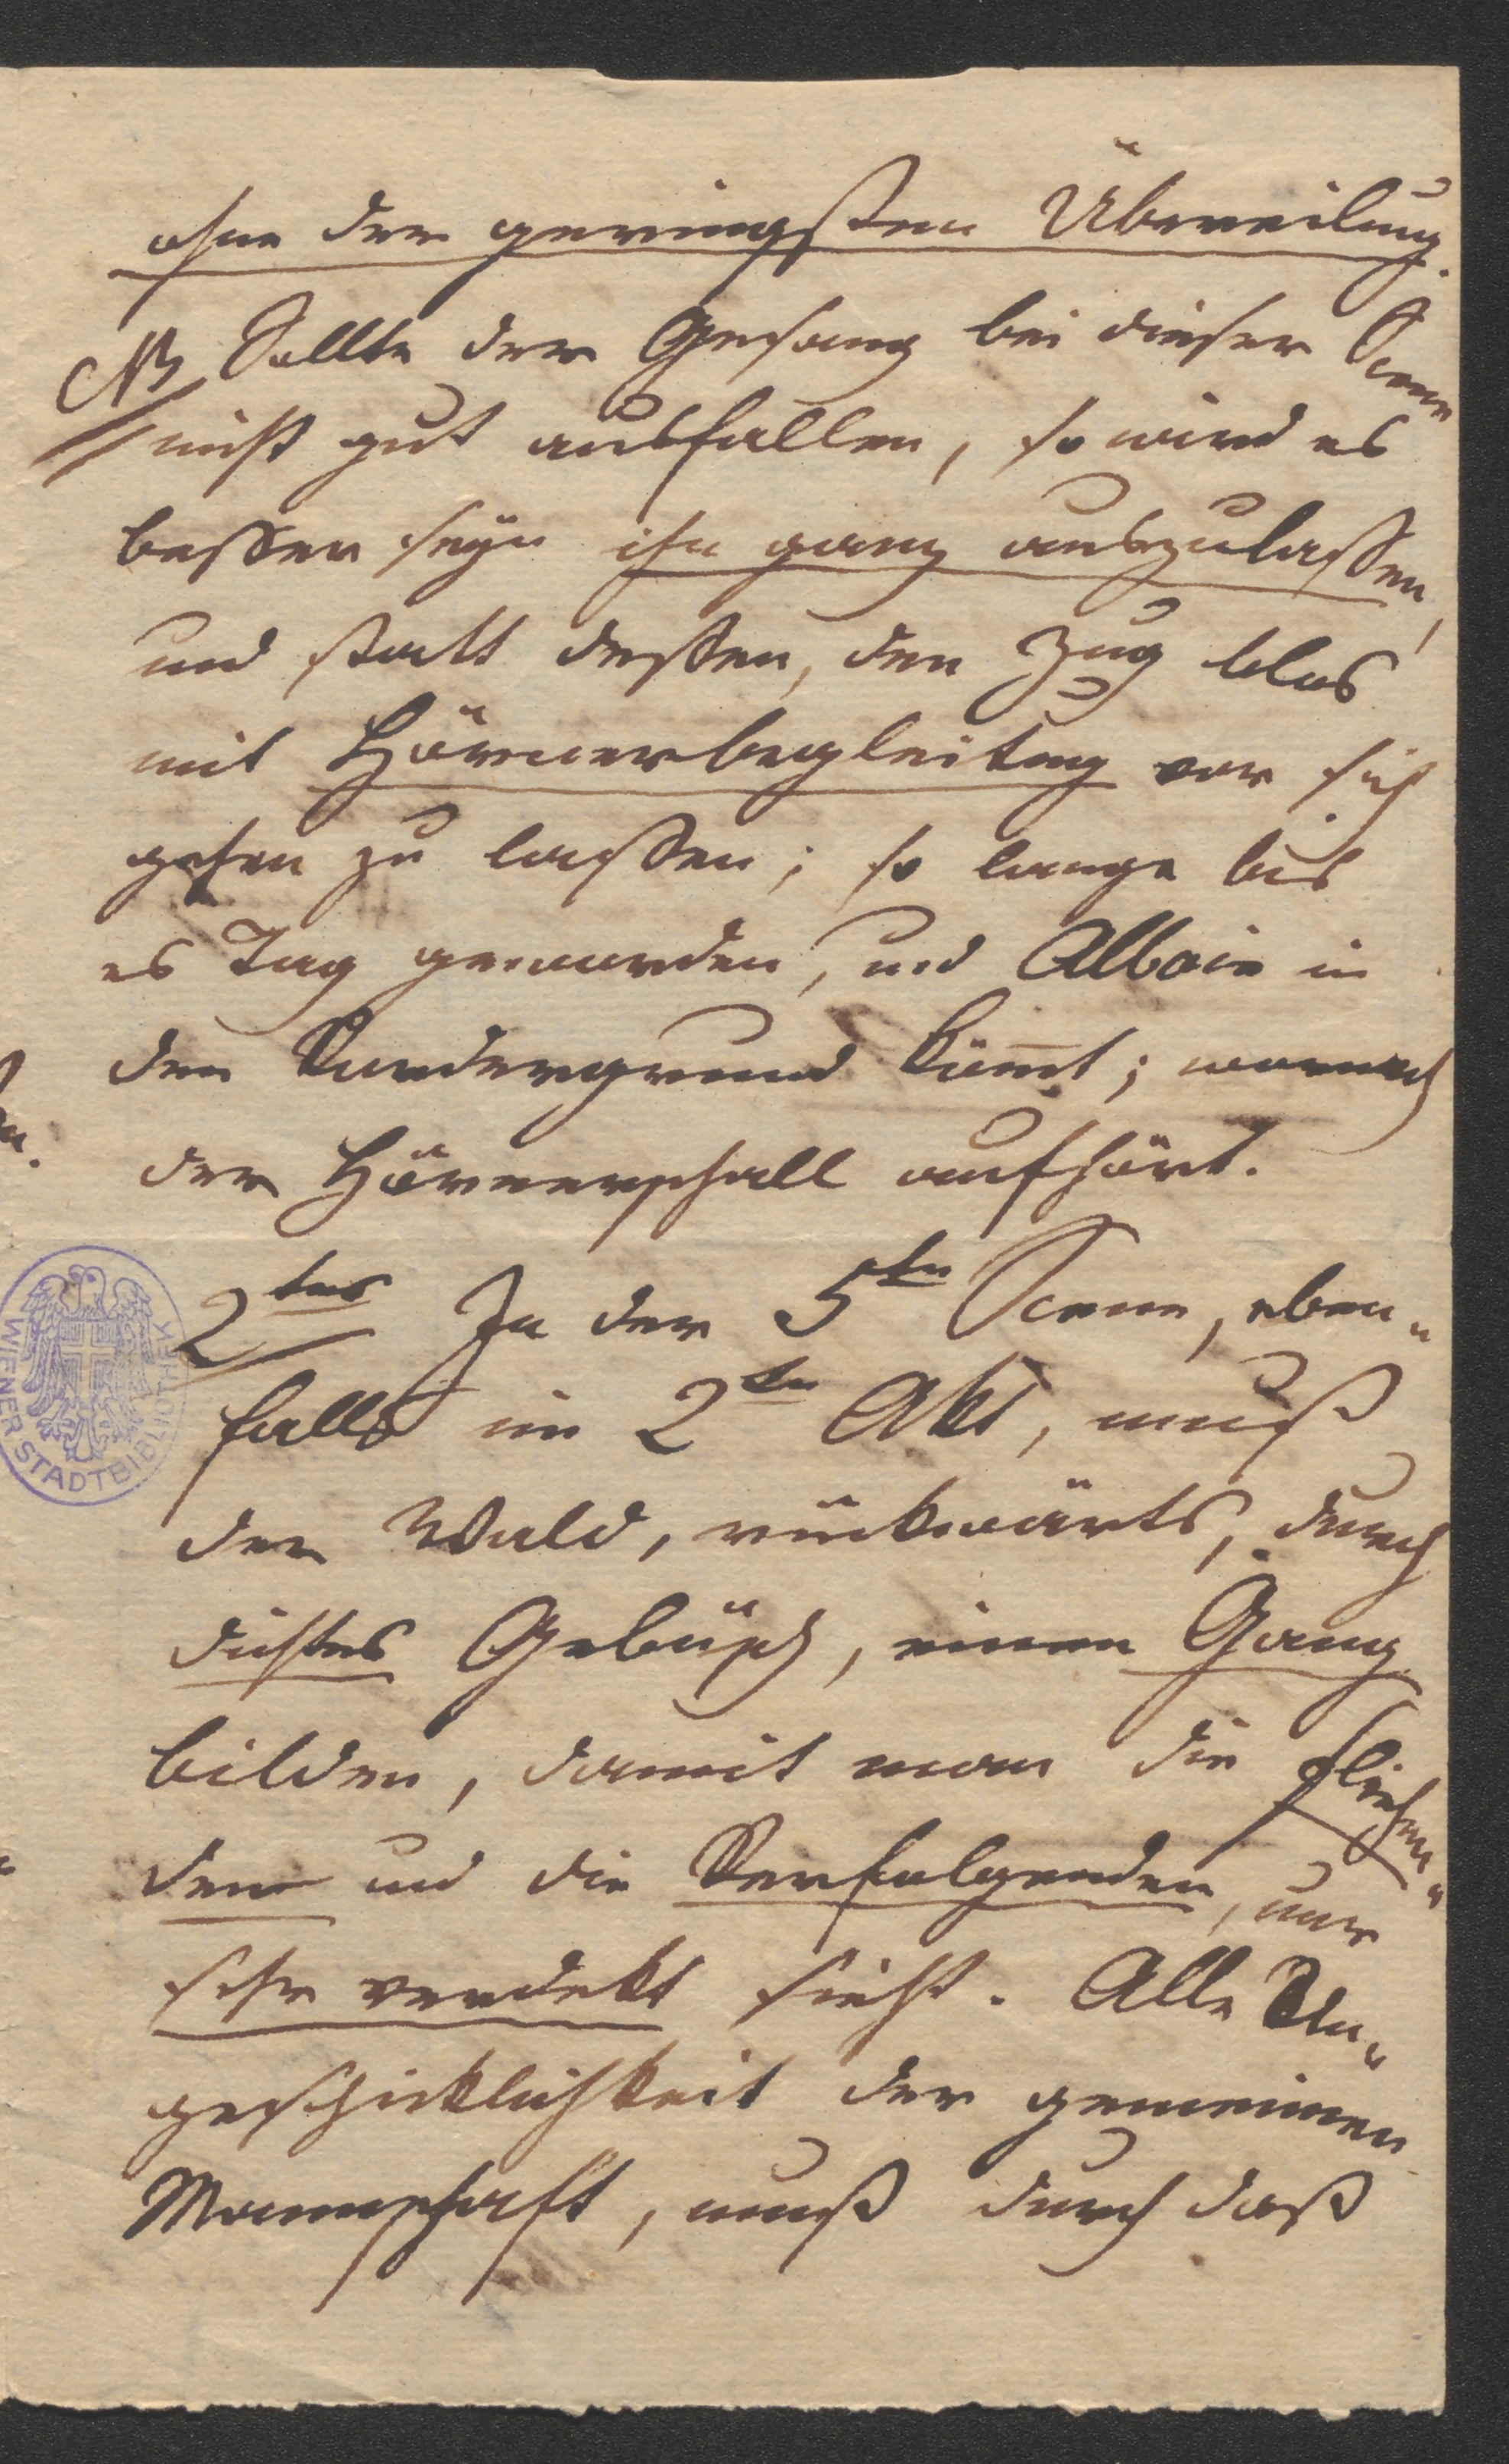 ohne der geringsten Übereilung.
NB Sollte der Gesang bei dieser Scene
nicht gut ausfallen, so wird es
besser seyn ihn ganz auszulassen,
und statt dessen, den Zug blos
mit Hörnerbegleitung vor sich
gehen zu lassen; so lange bis
es Tag geworden, und Alboin in
den Vordergrund kömt; wornach
der Hörnerschall aufhört.
2tens In der 5ten Scene, eben„
falls im 2ten Akt, muß
der Wald, rückwärts, durch
dichtes Gebüsch, einen Gang
bilden, damit man die Fliehen„
den und die Verfolgenden, nur
sehr verdekt sieht. Alle Un„
geschicklichkeit der gemeinen
Mannschaft, muß durch daß
WIENER STADTBIBLIOTHEK